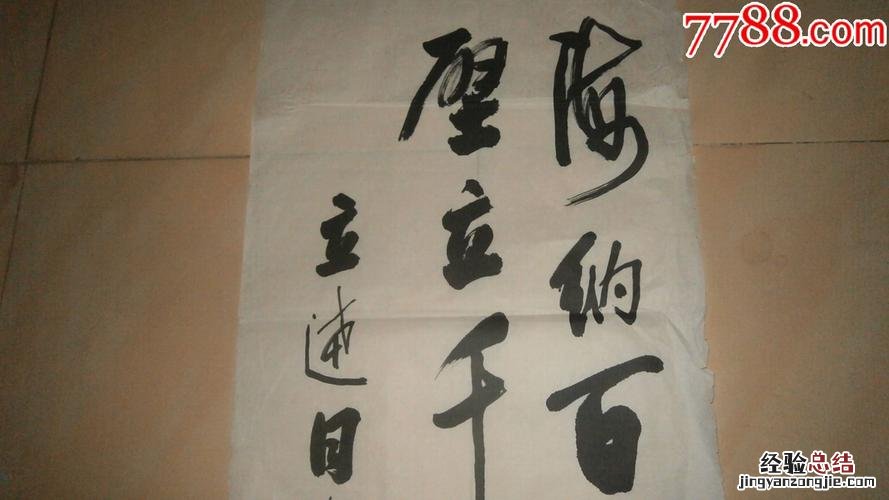 海纳百
壁立千
立
日
7788.com
经验总结
jingyanzongjie.com